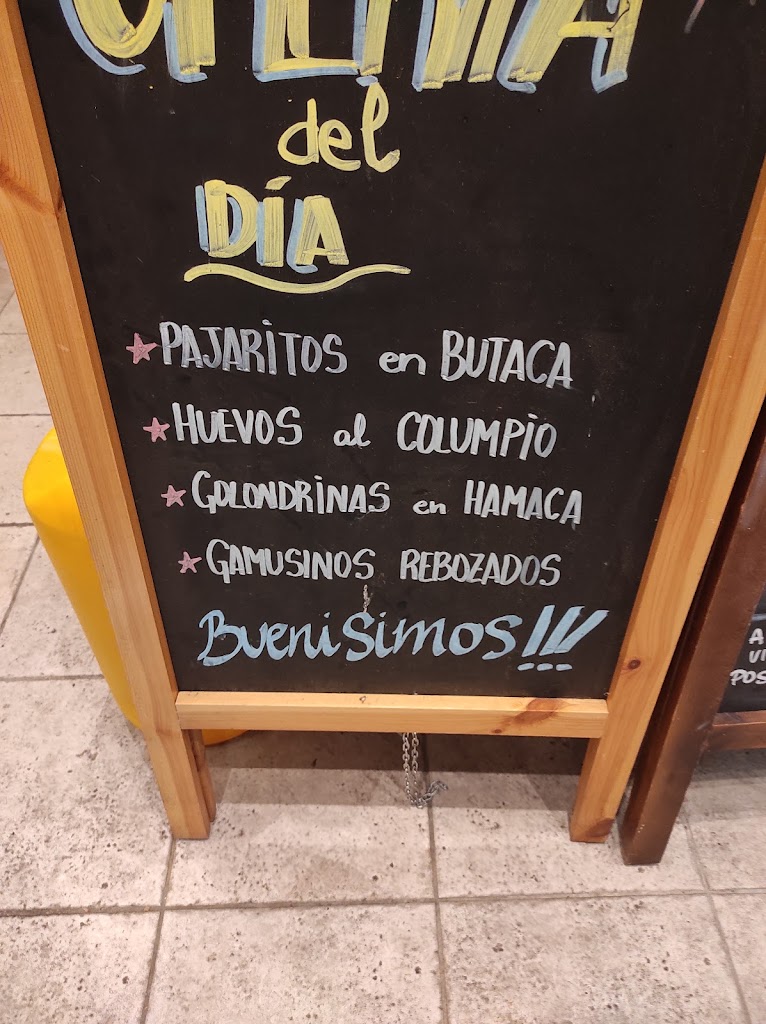 del
DÍA
PAJARITOS en BUTACA
HUEVOS al COLUMPIO
GOLONDRINAS en HAMACA
GAMUSINOS REBOZADOS
BUENISIMOS!!!